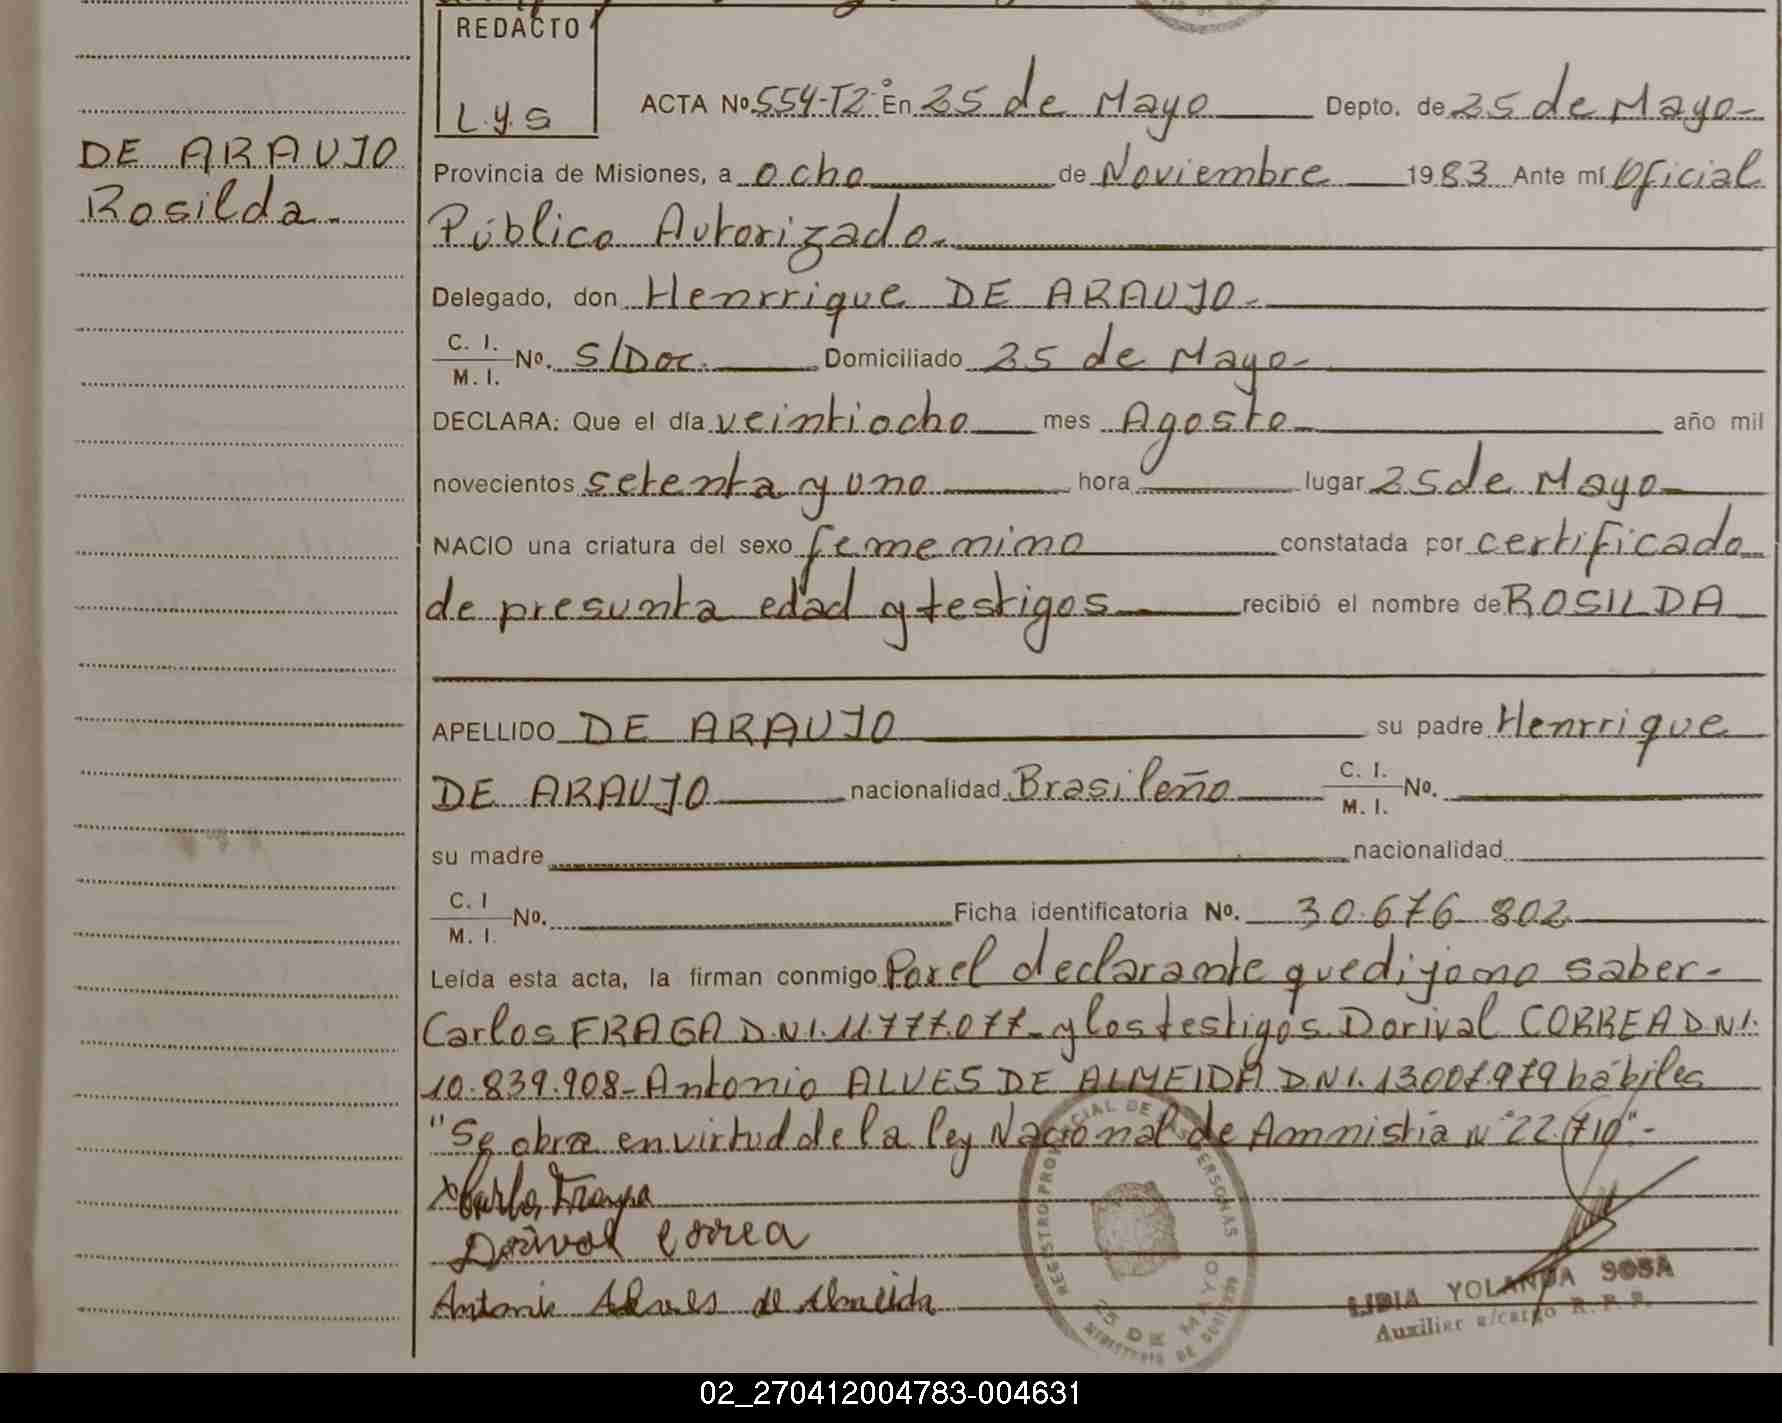 REDACTO
L.y.S
ACTA No. 554-T2º En 25 de Mayo Depto. de 25 de Mayo-
DE ARAUJO
Rosilda.
Provincia de Misiones, a ocho de Noviembre 1983 Ante mí Oficial
Público Autorizado.
Delegado, don Henrrique DE ARAUJO-
C. I.
M. I. No. S/Doc. Domiciliado 25 de Mayo-
DECLARA: Que el día veintiocho mes Agosto año mil
novecientos setenta y uno hora lugar 25 de Mayo
NACIO una criatura del sexo femenino constatada por certificado
de presunta edad y testigos recibió el nombre de ROSILDA
APELLIDO DE ARAUJO su padre Henrrique
DE ARAUJO nacionalidad Brasileño C. I. M. I. No.
su madre nacionalidad
C. I M. I. No. Ficha identificatoria No. 30.676 802
Leída esta acta, la firman conmigo Por el declarante que dijo no saber-
Carlos FRAGA D.N.I. 11.777.077- y los testigos Dorival CORREA D N I.
10.839.908- Antonio ALVES DE ALMEIDA D.N.I. 13.007.979 hábiles
"Se obra en virtud de la ley Nacional de Amnistia Nº 22.710"-
Dorival Correa
Antonio Alves de Almeida
REGISTRO PROVINCIAL DE PERSONAS
25 DE MAYO
MINISTERIO DE GOBIERNO
LIDIA YOLANDA SOSA
Auxiliar a/cargo R. P. P.
02_270412004783-004631